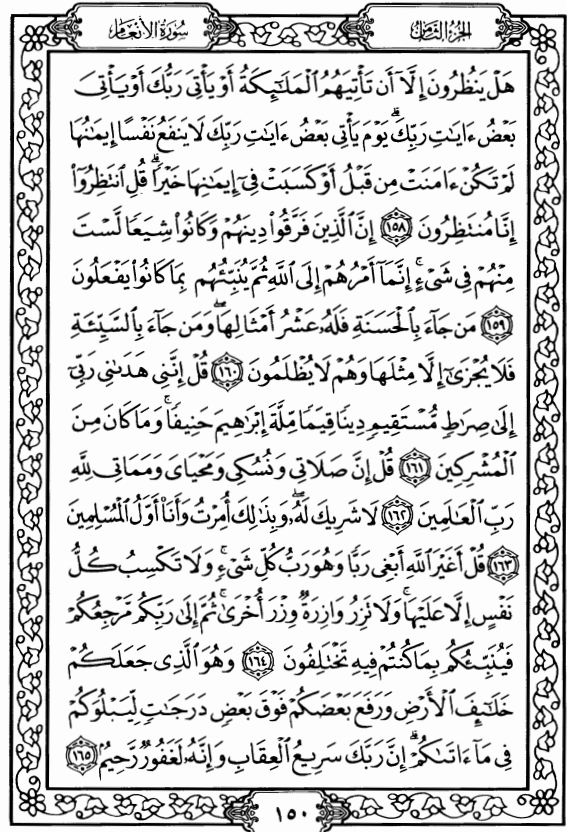 الجزء الثامن
سورة الأنعام
هَلْ يَنظُرُونَ إِلَّآ أَن تَأْتِيَهُمُ ٱلْمَلَٰٓئِكَةُ أَوْ يَأْتِىَ رَبُّكَ أَوْ يَأْتِىَ
بَعْضُ ءَايَٰتِ رَبِّكَ ۗ يَوْمَ يَأْتِى بَعْضُ ءَايَٰتِ رَبِّكَ لَا يَنفَعُ نَفْسًا إِيمَٰنُهَا
لَمْ تَكُنْ ءَامَنَتْ مِن قَبْلُ أَوْ كَسَبَتْ فِىٓ إِيمَٰنِهَا خَيْرًا ۗ قُلِ ٱنتَظِرُوٓا۟
إِنَّا مُنتَظِرُونَ ١٥٨ إِنَّ ٱلَّذِينَ فَرَّقُوا۟ دِينَهُمْ وَكَانُوا۟ شِيَعًا لَّسْتَ
مِنْهُمْ فِى شَىْءٍ ۚ إِنَّمَآ أَمْرُهُمْ إِلَى ٱللَّهِ ثُمَّ يُنَبِّئُهُم بِمَا كَانُوا۟ يَفْعَلُونَ
١٥٩ مَن جَآءَ بِٱلْحَسَنَةِ فَلَهُۥ عَشْرُ أَمْثَالِهَا ۖ وَمَن جَآءَ بِٱلسَّيِّئَةِ
فَلَا يُجْزَىٰٓ إِلَّا مِثْلَهَا وَهُمْ لَا يُظْلَمُونَ ١٦٠ قُلْ إِنَّنِى هَدَىٰنِى رَبِّىٓ
إِلَىٰ صِرَٰطٍ مُّسْتَقِيمٍ دِينًا قِيَمًا مِّلَّةَ إِبْرَٰهِيمَ حَنِيفًا ۚ وَمَا كَانَ مِنَ
ٱلْمُشْرِكِينَ ١٦١ قُلْ إِنَّ صَلَاتِى وَنُسُكِى وَمَحْيَاىَ وَمَمَاتِى لِلَّهِ
رَبِّ ٱلْعَٰلَمِينَ ١٦٢ لَا شَرِيكَ لَهُۥ ۖ وَبِذَٰلِكَ أُمِرْتُ وَأَنَا۠ أَوَّلُ ٱلْمُسْلِمِينَ
١٦٣ قُلْ أَغَيْرَ ٱللَّهِ أَبْغِى رَبًّا وَهُوَ رَبُّ كُلِّ شَىْءٍ ۚ وَلَا تَكْسِبُ كُلُّ
نَفْسٍ إِلَّا عَلَيْهَا ۚ وَلَا تَزِرُ وَازِرَةٌ وِزْرَ أُخْرَىٰ ۚ ثُمَّ إِلَىٰ رَبِّكُم مَّرْجِعُكُمْ
فَيُنَبِّئُكُم بِمَا كُنتُمْ فِيهِ تَخْتَلِفُونَ ١٦٤ وَهُوَ ٱلَّذِى جَعَلَكُمْ
خَلَٰٓئِفَ ٱلْأَرْضِ وَرَفَعَ بَعْضَكُمْ فَوْقَ بَعْضٍ دَرَجَٰتٍ لِّيَبْلُوَكُمْ
فِى مَآ ءَاتَىٰكُمْ ۗ إِنَّ رَبَّكَ سَرِيعُ ٱلْعِقَابِ وَإِنَّهُۥ لَغَفُورٌ رَّحِيمٌۢ ١٦٥
١٥٠